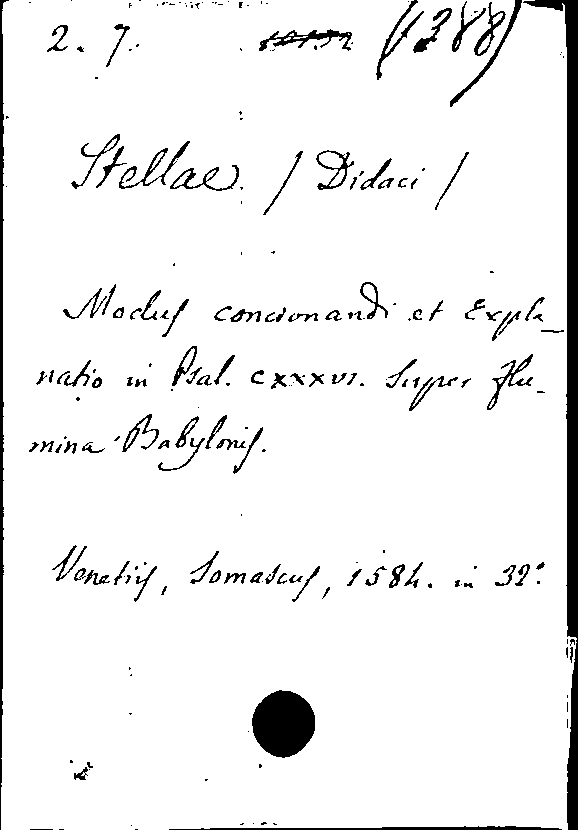 2. 7. (1388)
Stellae / Didaci /
Modus concionandi et Expla_
natio in Psal. CXXXVI. super flu_
mina Babylonis.
Venetiis, Somascus, 1584. in 32º.